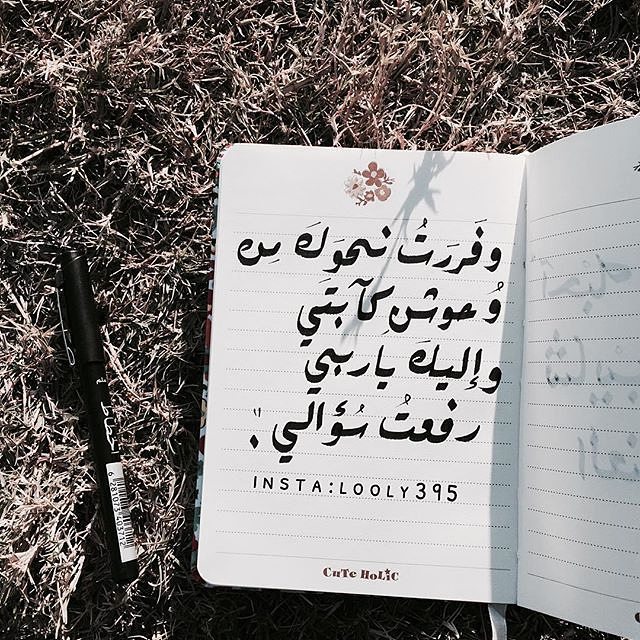 وفَررَتُ نحوَكَ مِن
وُحوشِ كآبتَي
وإليكَ ياربي
رفعتُ سُؤالي ..
INSTA:LOOLY395
CuTe HoLiC